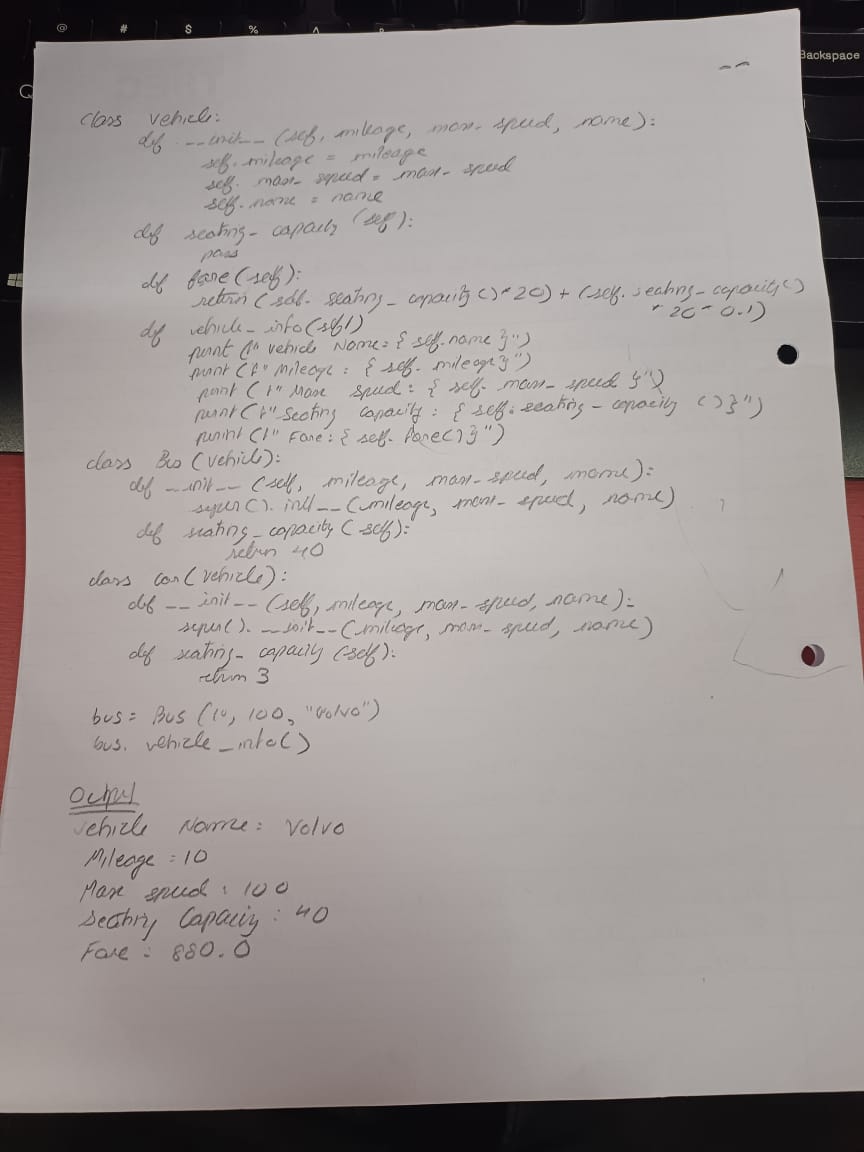 @ # $ %
Backspace
class vehicle:
def __init__ (self, mileage, max_speed, name):
self.mileage = mileage
self.max_speed = max_speed
self.name = name
def seating_capacity (self):
pass
def fare (self):
return (self.seating_capacity()*20) + (self.seating_capacity()
*20*0.1)
def vehicle_info(self)
print (f" vehicle Name: { self.name }")
print (f" Mileage : { self.mileage}")
print (f" Max speed : { self.max_speed }")
print (f" Seating capacity : { self.seating_capacity ()}")
print (f" Fare : { self.fare()}")
class Bus (vehicle):
def __init__ (self, mileage, max_speed, name):
super().init__(mileage, max_speed, name)
def seating_capacity (self):
return 40
class car (vehicle):
def __init__ (self, mileage, max_speed, name):
super().__init__(mileage, max_speed, name)
def seating_capacity (self):
return 3
bus = Bus (10, 100, "Volvo")
bus.vehicle_info()
Output
vehicle Name: Volvo
Mileage : 10
Max speed : 100
Seating Capaciy : 40
Fare : 880.0